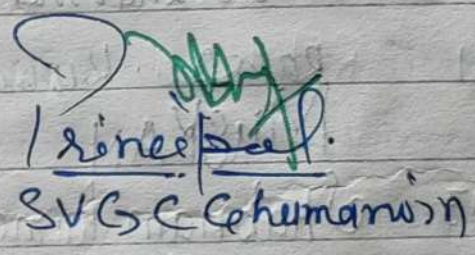 Principal.
SVGC Ghumarwin